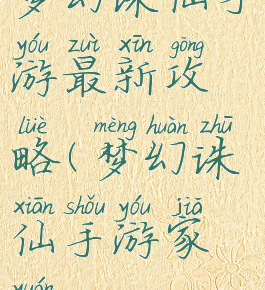 梦幻诛仙手
yóu zuì xīn gōng
游最新攻
lüè mèng huàn zhū
略(梦幻诛
xiān shǒu yóu jiā
仙手游家
yuán